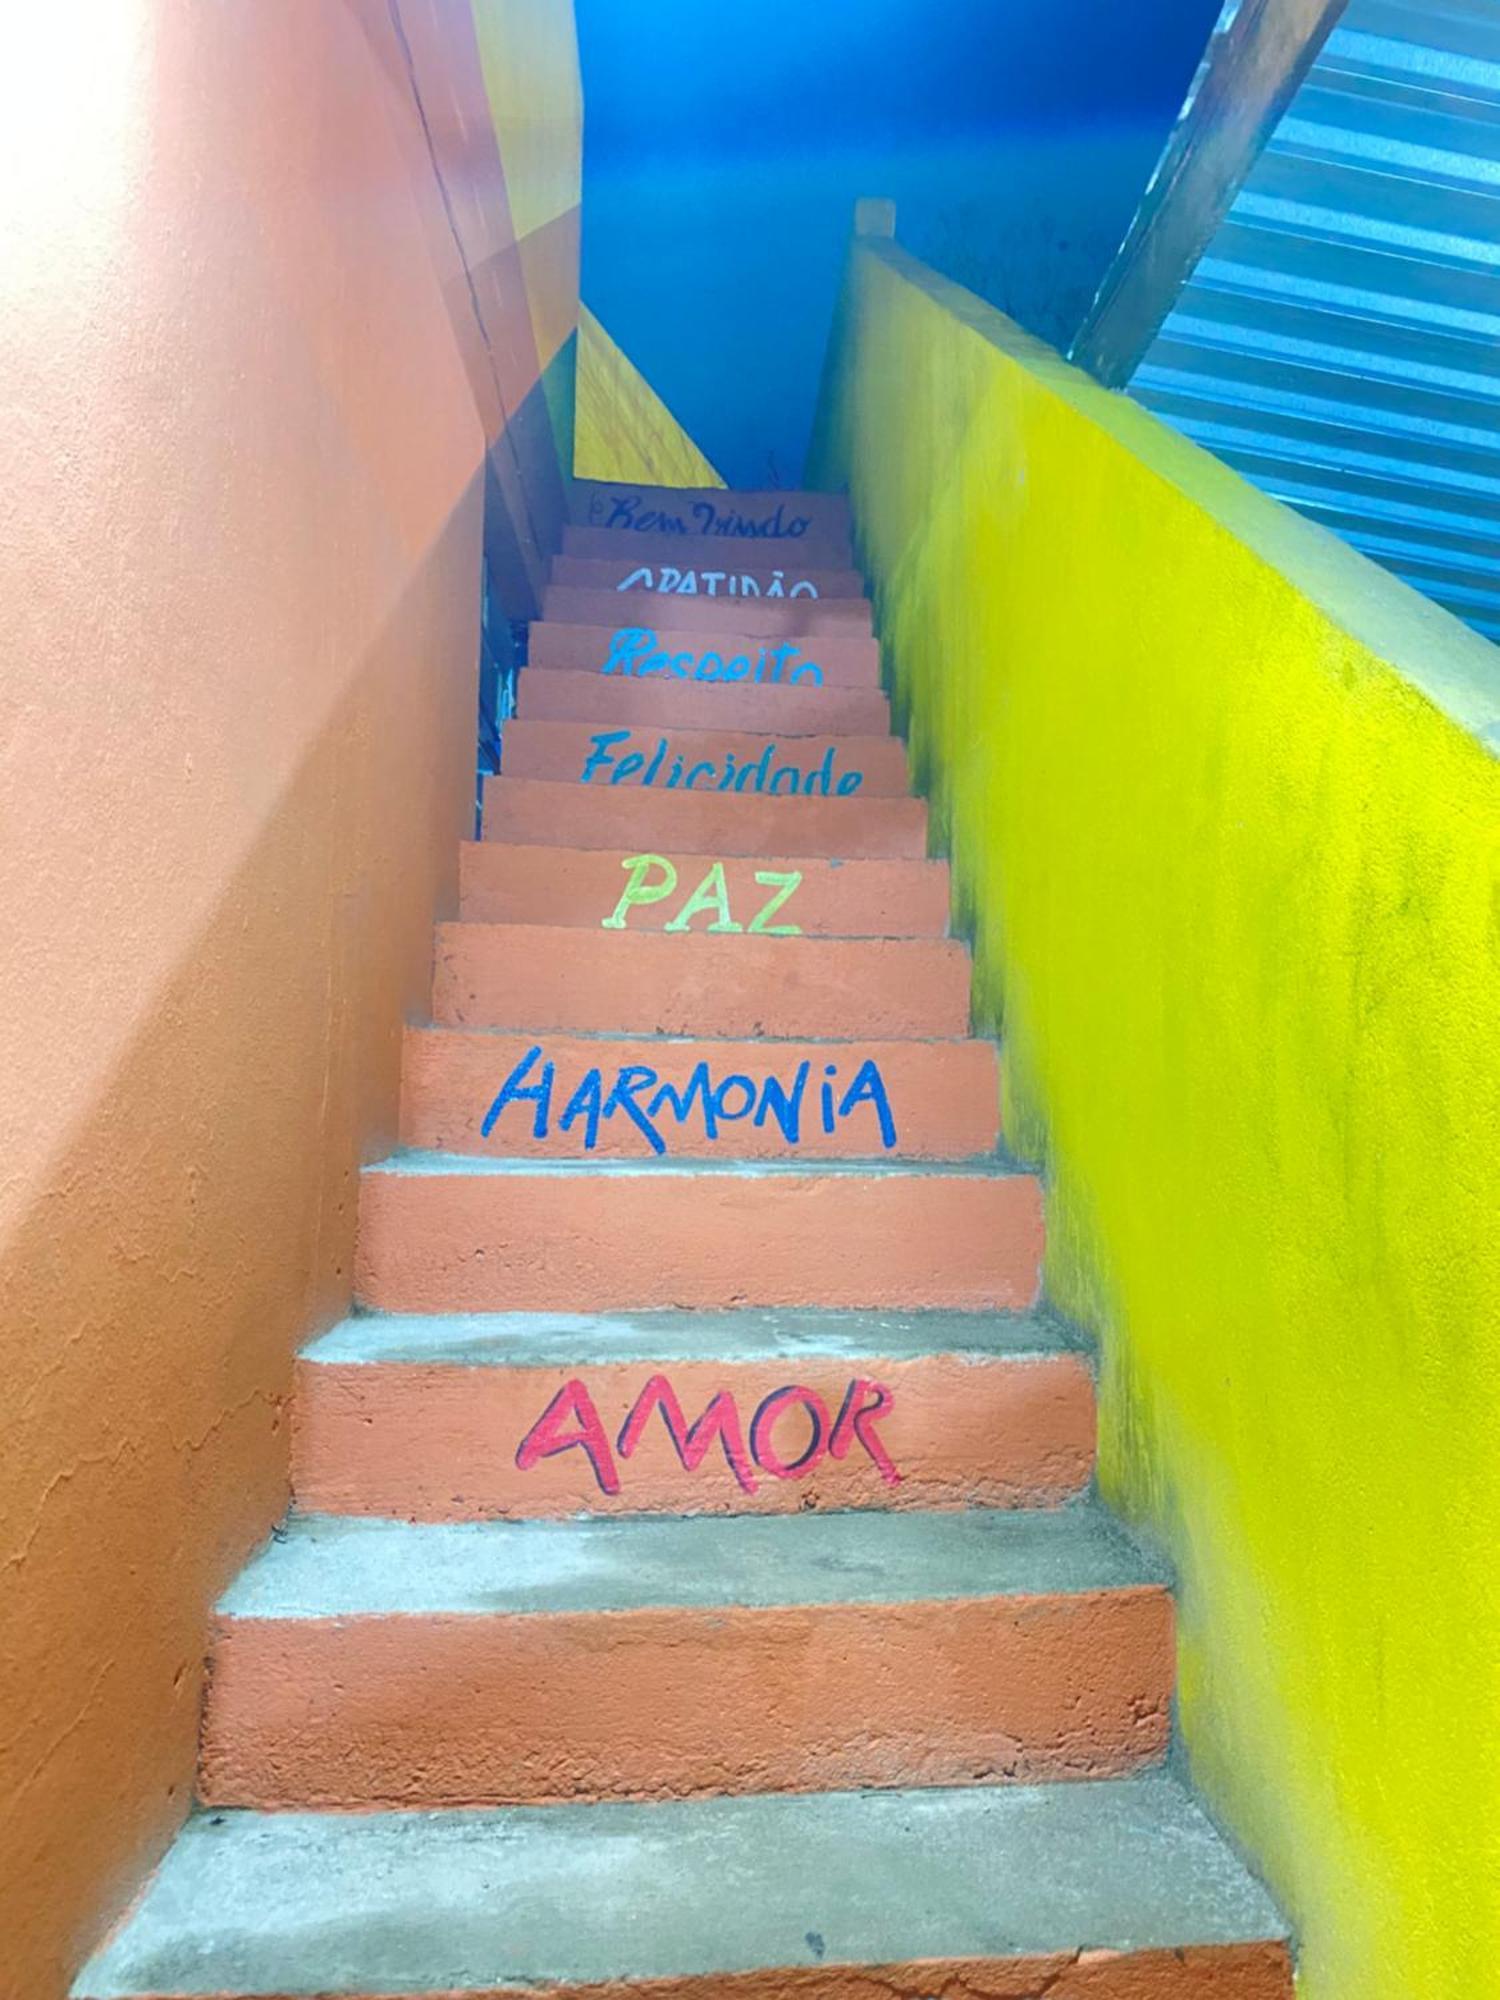 Bem Vindo
GRATIDÃO
Respeito
Felicidade
PAZ
HARMONiA
AMOR